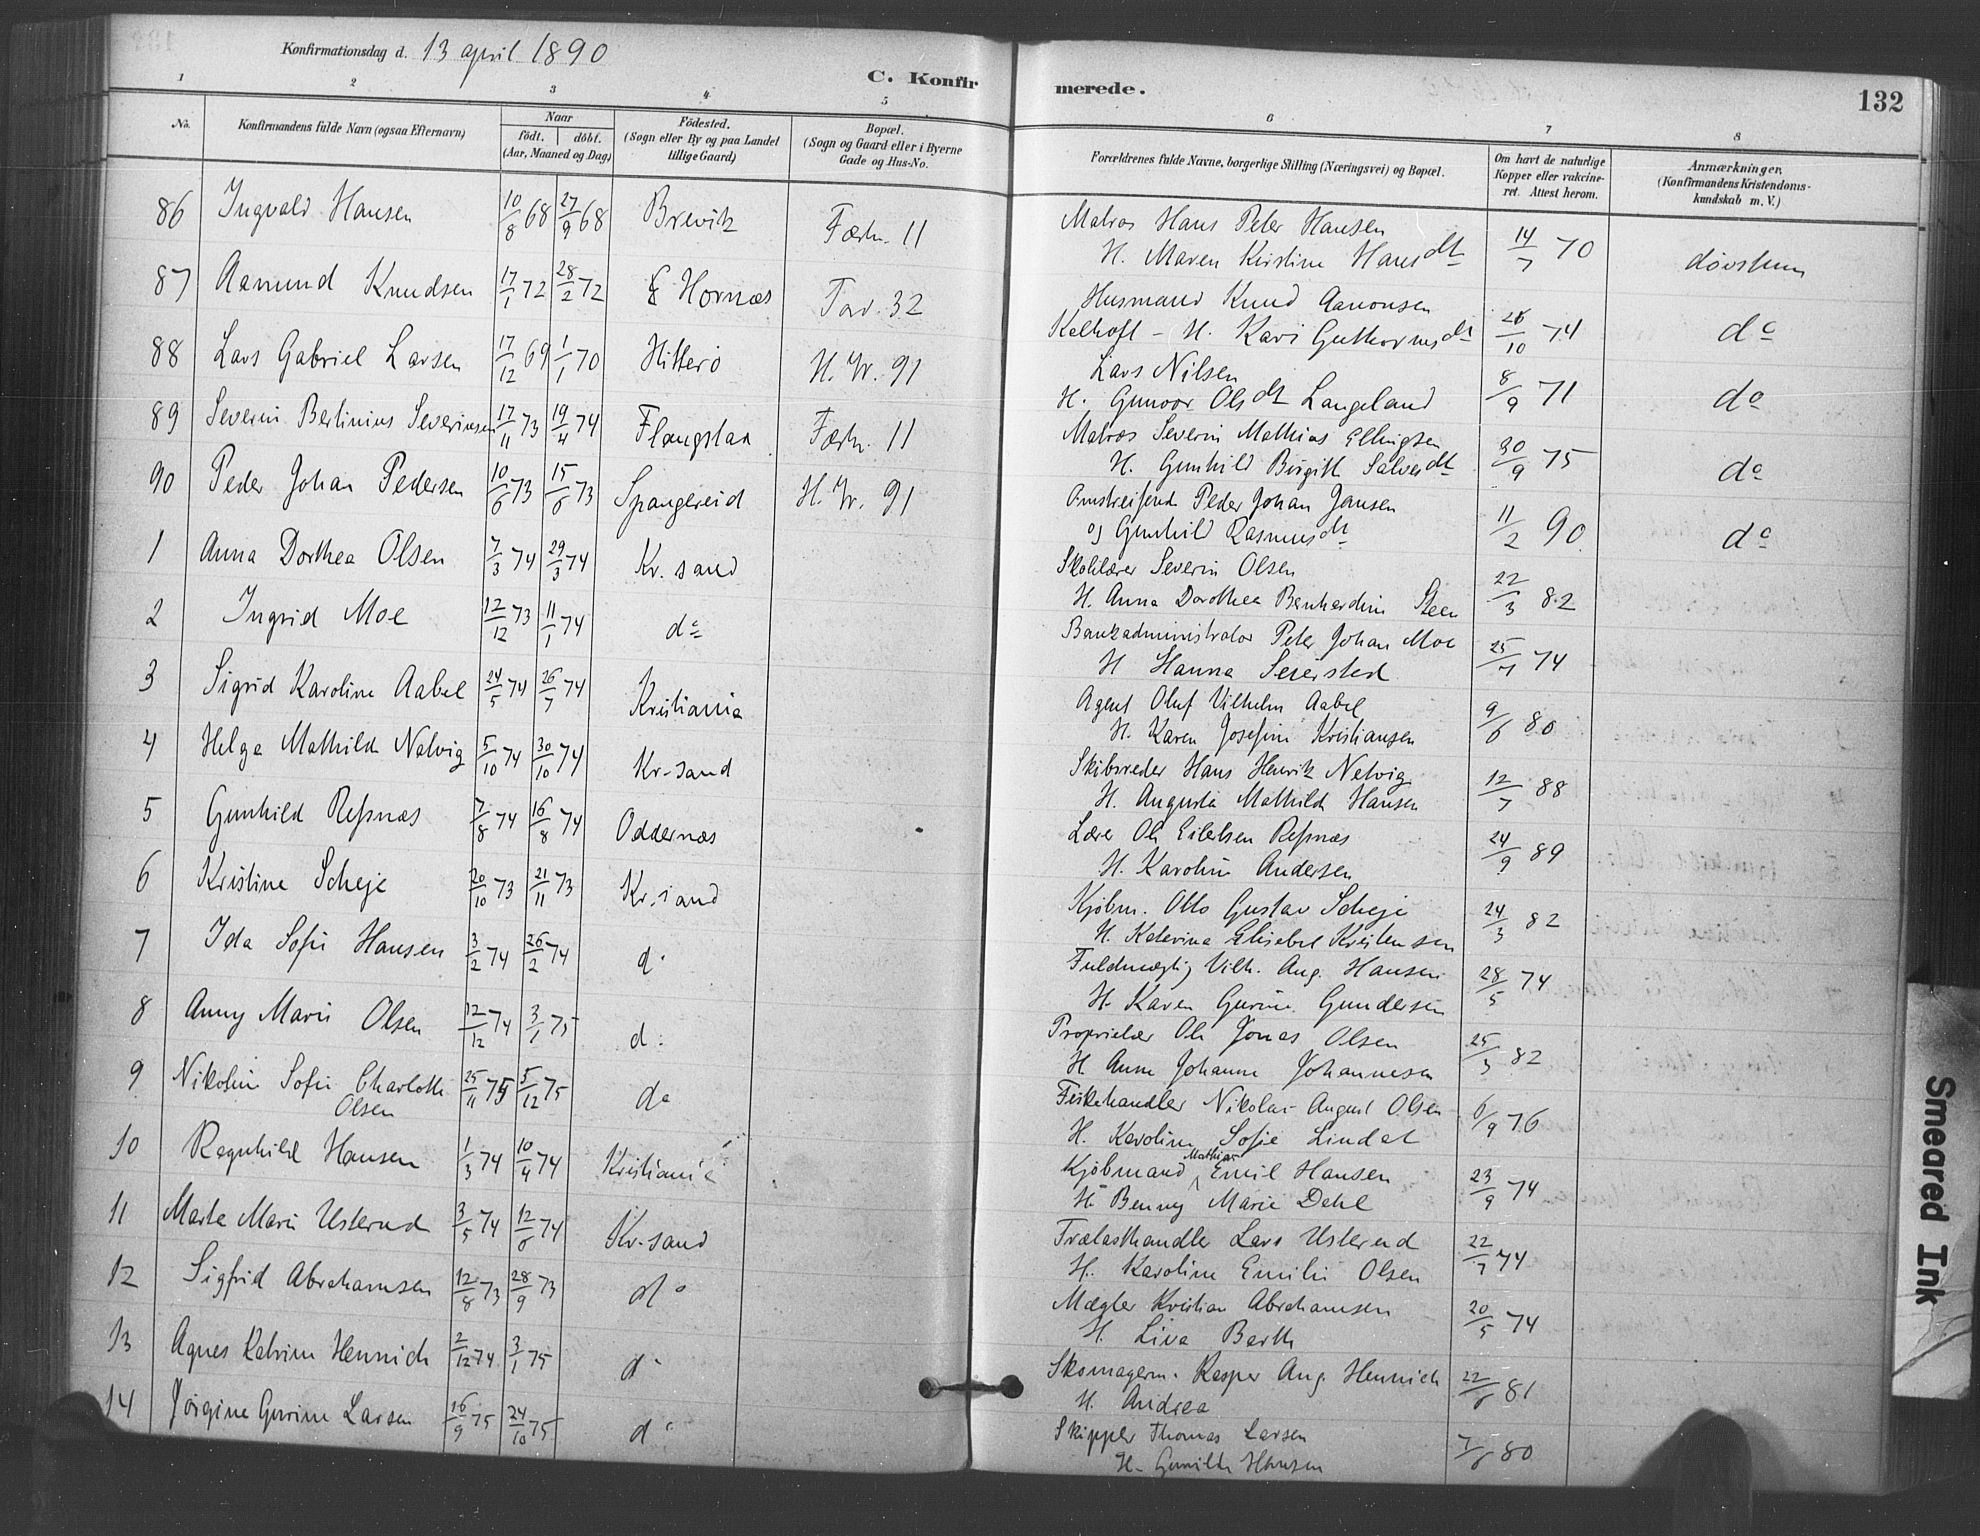 Konfirmationsdag d. 13 april 1890
C. Konfirmerede.
132
1 2 3 4 5 6 7 8
No.
Konfirmandens fulde Navn (ogsaa Efternavn)
Naar
født. døbt.
(Aar, Maaned og Dag)
Fødested.
(Sogn eller By og paa Landet
tillige Gaard)
Bopæl.
(Sogn og Gaard eller i Byerne
Gade og Hus-No.
Forældrenes fulde Navne, borgerlige Stilling (Næringsvei) og Bopæl.
Om havt de naturlige
Kopper eller vakcine-
ret. Attest herom.
Anmærkninger.
(Konfirmandens Kristendoms-
kundskab m. V.)
86 Ingvald Hansen 10/8 68 27/9 68 Brevik Færh. 11
Matros Hans Peter Hansen
H. Maren Kirstine Hansdt 14/7 70 døvstum
87 Aamund Knudsen 17/1 72 28/2 72 Hornæs Tor. 32
Husmand Knud Aanonsen
Kalhoft - H. Kari Guthormsdt 26/10 74 do
88 Lars Gabriel Larsen 17/12 69 1/1 70 Hitterø H. W. 91
Lars Nilsen
H. Gunvor Olsdt Langeland 8/9 71 do
89 Severin Bertinius Severinsen 17/11 73 19/4 74 Flaugstad Færh. 11
Matros Severin Mathias Ellingsen
H. Gunhild Birgitt Salvesdt 30/9 75 do
90 Peder Johan Pedersen 10/6 73 15/6 73 Spangereid H. W. 91
Omstreifende Peder Johan Jansen
og Gunhild Rasmusdt 11/2 90 do
1 Anna Dorthea Olsen 7/3 74 29/3 74 Kr. sand
Skolelærer Severin Olsen
H. Anna Dorothea Bernhardine Steen 22/3 82
2 Ingrid Moe 12/12 73 11/1 74 do
Bankadministrator Peter Johan Moe
H Hanna Seiersted 25/7 74
3 Sigrid Karoline Aabel 24/5 74 26/7 74 Kristiania
Agent Oluf Vilhelm Aabel
H. Karen Josefine Kristiansen 9/6 80
4 Helga Mathilde Nelvig 5/10 74 30/10 74 Kr-sand
Skibsreder Hans Henrik Nelvig
H. Augusta Mathilde Hansen 12/7 88
5 Gunhild Refsnæs 7/8 74 16/8 74 Oddernæs
Lærer Ole Eilertsen Refsnæs
H. Karoline Andersen 24/9 89
6 Kristine Scheje 20/10 73 21/11 73 Kr.sand
Kjøbm. Otto Gustav Scheje
H. Katerina Elisabet Kristensen 24/3 82
7 Ida Sofie Hansen 3/2 74 26/2 74 do
Fuldmægtig Vilh. Aug. Hansen
H. Karen Gurine Gundersen 28/5 74
8 Anny Marie Olsen 12/12 74 3/1 75 do
Proprietær Ole Jonas Olsen
H Anne Johanne Johannesen 25/3 82
9 Nikoline Sofie Charlotte
Olsen 25/11 75 5/12 75 do
Fiskehandler Nikolai August Olsen
H. Karoline Sofie Lindal 6/9 76
10 Ragnhild Hansen 1/3 74 10/4 74 Kristiania
Kjøbmand Mathias Emil Hansen
H Benny Marie Dahl 23/9 74
11 Marte Marie Usterud 3/5 74 12/6 74 Kr-sand
Trælasthandler Lars Usterud
H. Karoline Emilie Olsen 22/7 74
12 Sigfrid Abrahamsen 12/8 73 28/9 73 do
Mægler Kristian Abrahamsen
H. Lina Barth 20/5 74
13 Agnes Katrine Hennich 2/12 74 3/1 75 do
Skomagerm. Kasper Aug. Hennich
H. Andrea 22/6 81
14 Jørgine Gurine Larsen 16/9 75 24/10 75 do
Skipper Thomas Larsen
H. Gunilde Hansen 7/6 80
Smeared Ink